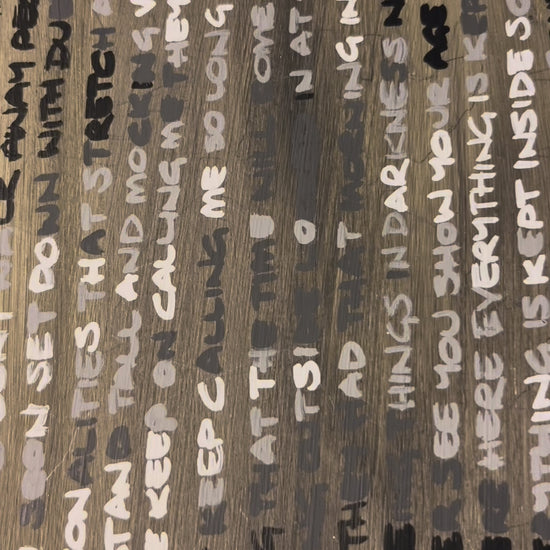 AWAY PE
SOON SET DOWN WITH DU
ON ALITIES THAT STRETCH
TAND TALL AND MOCKING
E KEEP ON CALLING ME THEY
KEEP CALLING ME SO LONG
THAT THE TIME WILL OME
TSI LO IN AT S
TH AD THAT MORN ING IN
HINGS IN DARKNESS N
EE YOU SHOW YOUR AGE
HERE EVERYTHING IS KEP
YTHING IS KEPT INSIDE SO